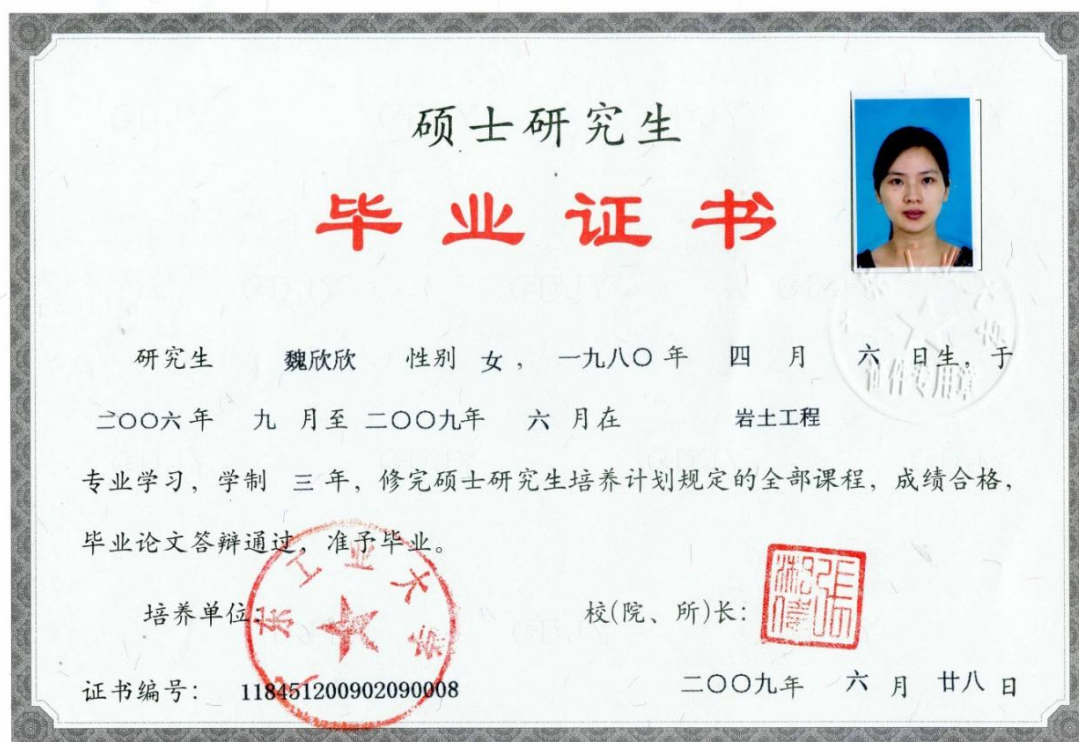 硕士研究生
毕业证书
研究生 魏欣欣 性别 女， 一九八〇 年 四 月 六 日生，于
二〇〇六年 九 月至 二〇〇九年 六 月在 岩土工程
专业学习，学制 三 年，修完硕士研究生培养计划规定的全部课程，成绩合格，
毕业论文答辩通过，准予毕业。
培养单位： 校(院、所)长：
广东工业大学
证书编号： 118451200902090008 二〇〇九年 六 月 廿八 日
证件专用章